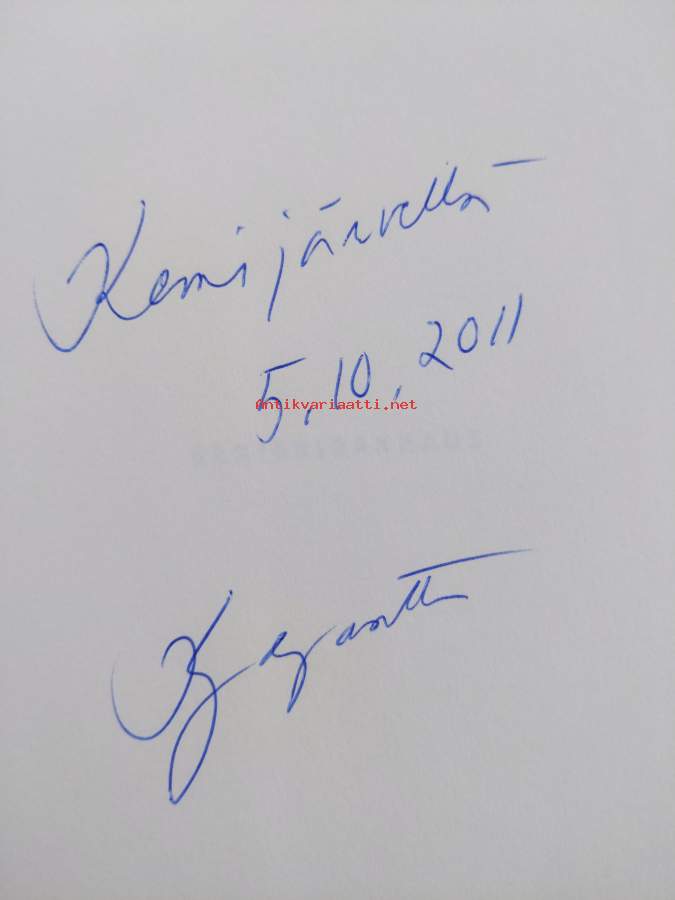 Kemijärvellä
5.10.2011
Antikvariaatti.net